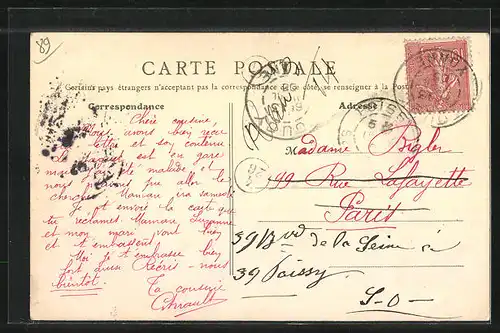 89
CARTE POSTALE
Certains pays étrangers n'acceptent pas la correspondance de ce côté, se renseigner à la Poste
Correspondance
Adresse
Chère cousine,
Nous avons bien reçu
lettre et son contenu
Le paquet est en gare
malade et
nous pas aller le
chercher. Maman ira samedi
Je et envoie la carte que
tu réclames. Maman, Suzanne
et mon mari vont bien
et t'embrassent.
Moi je t'embrasse bien
fort aussi Ecris-nous
bientôt. Ta cousine
Madame Bigler
199 Rue Lafayette
Paris
39 Bvd de la Seine à
39 Poissy
S-O-